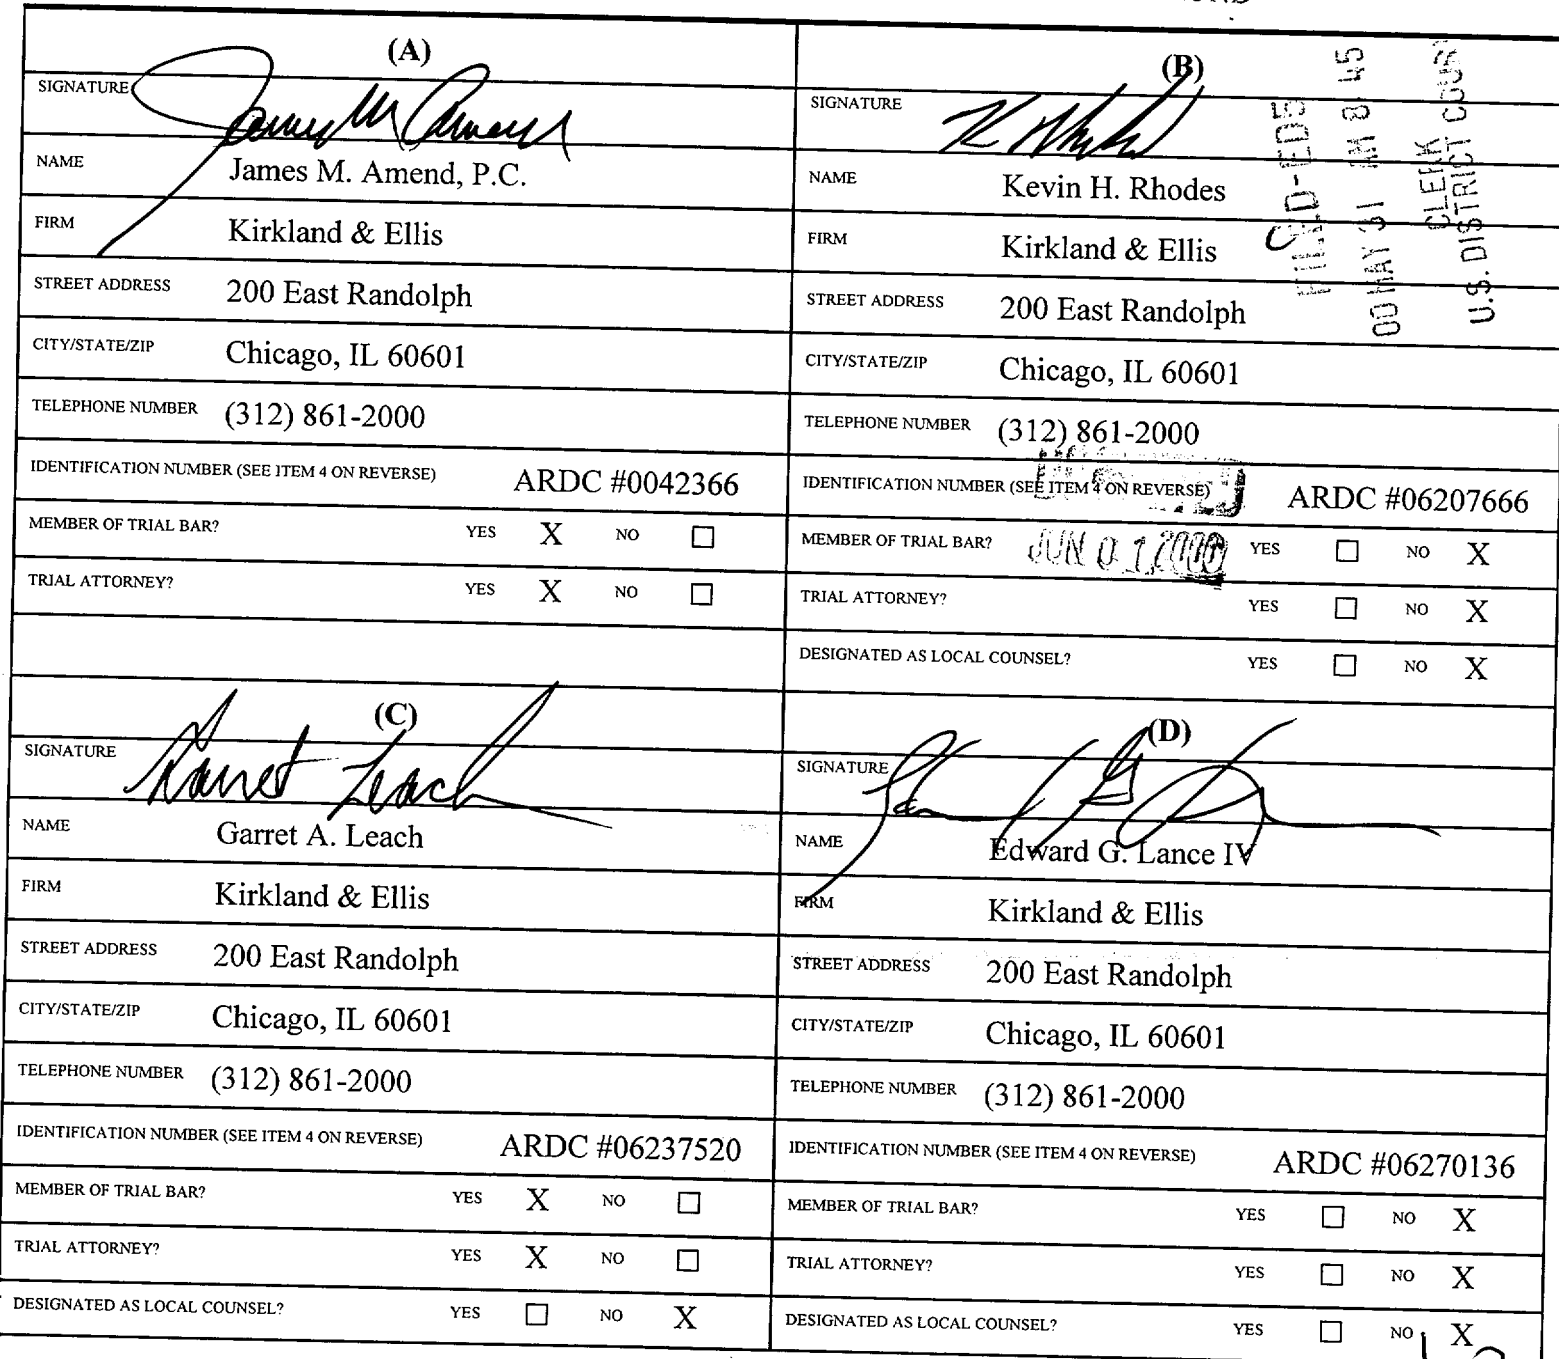 (A)
SIGNATURE James M Amend
NAME James M. Amend, P.C.
FIRM Kirkland & Ellis
STREET ADDRESS 200 East Randolph
CITY/STATE/ZIP Chicago, IL 60601
TELEPHONE NUMBER (312) 861-2000
IDENTIFICATION NUMBER (SEE ITEM 4 ON REVERSE) ARDC #0042366
MEMBER OF TRIAL BAR? YES X NO ☐
TRIAL ATTORNEY? YES X NO ☐
(B)
SIGNATURE
NAME Kevin H. Rhodes
FIRM Kirkland & Ellis
STREET ADDRESS 200 East Randolph
CITY/STATE/ZIP Chicago, IL 60601
TELEPHONE NUMBER (312) 861-2000
IDENTIFICATION NUMBER (SEE ITEM 4 ON REVERSE) ARDC #06207666
MEMBER OF TRIAL BAR? YES ☐ NO X
TRIAL ATTORNEY? YES ☐ NO X
DESIGNATED AS LOCAL COUNSEL? YES ☐ NO X
FILED-ED5
00 MAY 31 AM 8:45
CLERK
U.S. DISTRICT COURT
JUN 01 2000
(C)
SIGNATURE Garret Leach
NAME Garret A. Leach
FIRM Kirkland & Ellis
STREET ADDRESS 200 East Randolph
CITY/STATE/ZIP Chicago, IL 60601
TELEPHONE NUMBER (312) 861-2000
IDENTIFICATION NUMBER (SEE ITEM 4 ON REVERSE) ARDC #06237520
MEMBER OF TRIAL BAR? YES X NO ☐
TRIAL ATTORNEY? YES X NO ☐
DESIGNATED AS LOCAL COUNSEL? YES ☐ NO X
(D)
SIGNATURE
NAME Edward G. Lance IV
FIRM Kirkland & Ellis
STREET ADDRESS 200 East Randolph
CITY/STATE/ZIP Chicago, IL 60601
TELEPHONE NUMBER (312) 861-2000
IDENTIFICATION NUMBER (SEE ITEM 4 ON REVERSE) ARDC #06270136
MEMBER OF TRIAL BAR? YES ☐ NO X
TRIAL ATTORNEY? YES ☐ NO X
DESIGNATED AS LOCAL COUNSEL? YES ☐ NO X